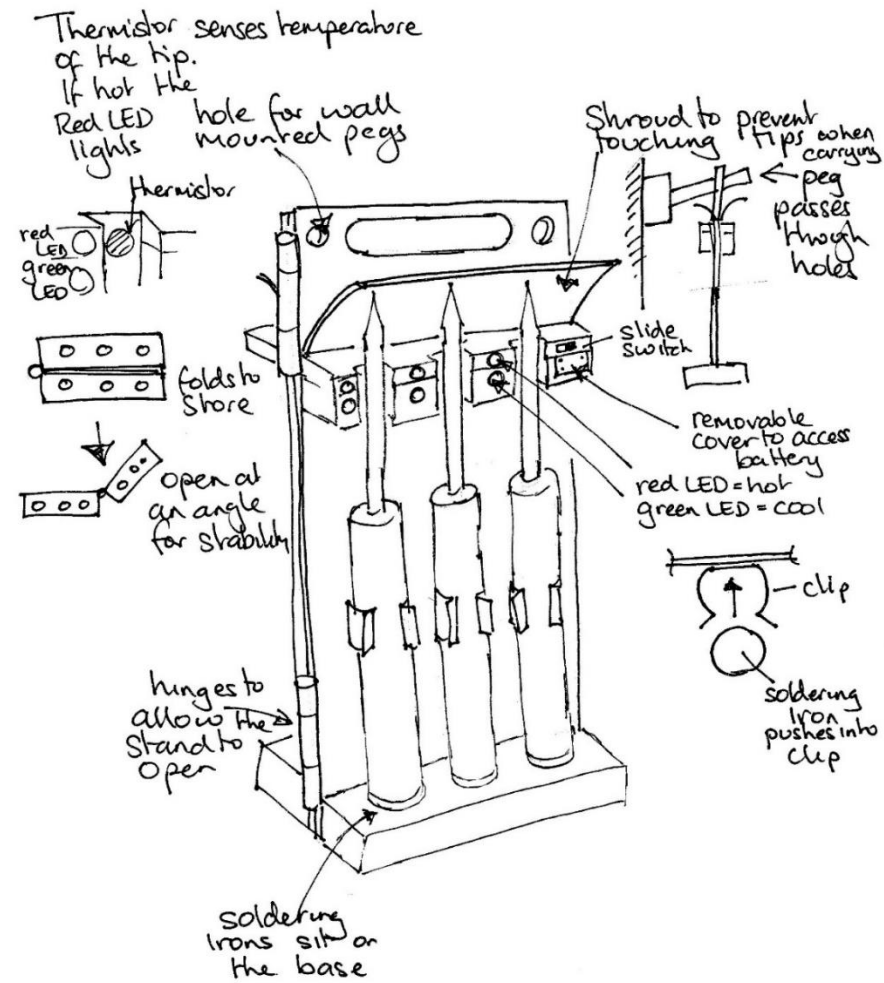 Thermistor senses temperature
of the tip.
If hot the
Red LED
lights
hole for wall
mounted pegs
Shroud to prevent
touching tips when
carrying
peg
passes
though
holes
thermistor
red
LED
green
LED
slide
switch
folds to
Store
removable
cover to access
battery
red LED = hot
green LED = cool
open at
an angle
for stability
clip
soldering
Iron
pushes into
clip
hinges to
allow the
Stand to
open
soldering
Irons sit on
the base